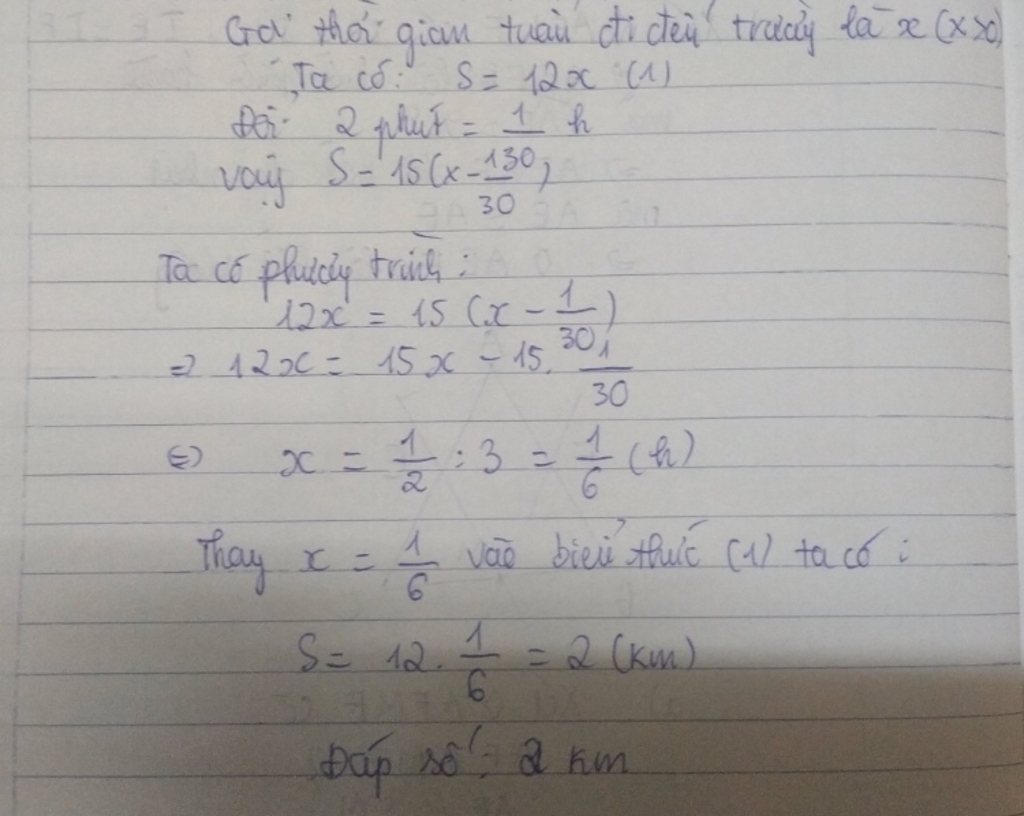 Gọi thời gian tuấn đi đến trường là x (x>0)
Ta có: S = 12x (1)
Đổi 2 phút = 1/ h
vậy S = 15(x - 130/30)
Ta có phương trình:
12x = 15 (x - 1/30)
=> 12x = 15x - 15. 1/30
<=> x = 1/2 : 3 = 1/6 (h)
Thay x = 1/6 vào biểu thức (1) ta có:
S = 12. 1/6 = 2 (km)
Đáp số: 2 km